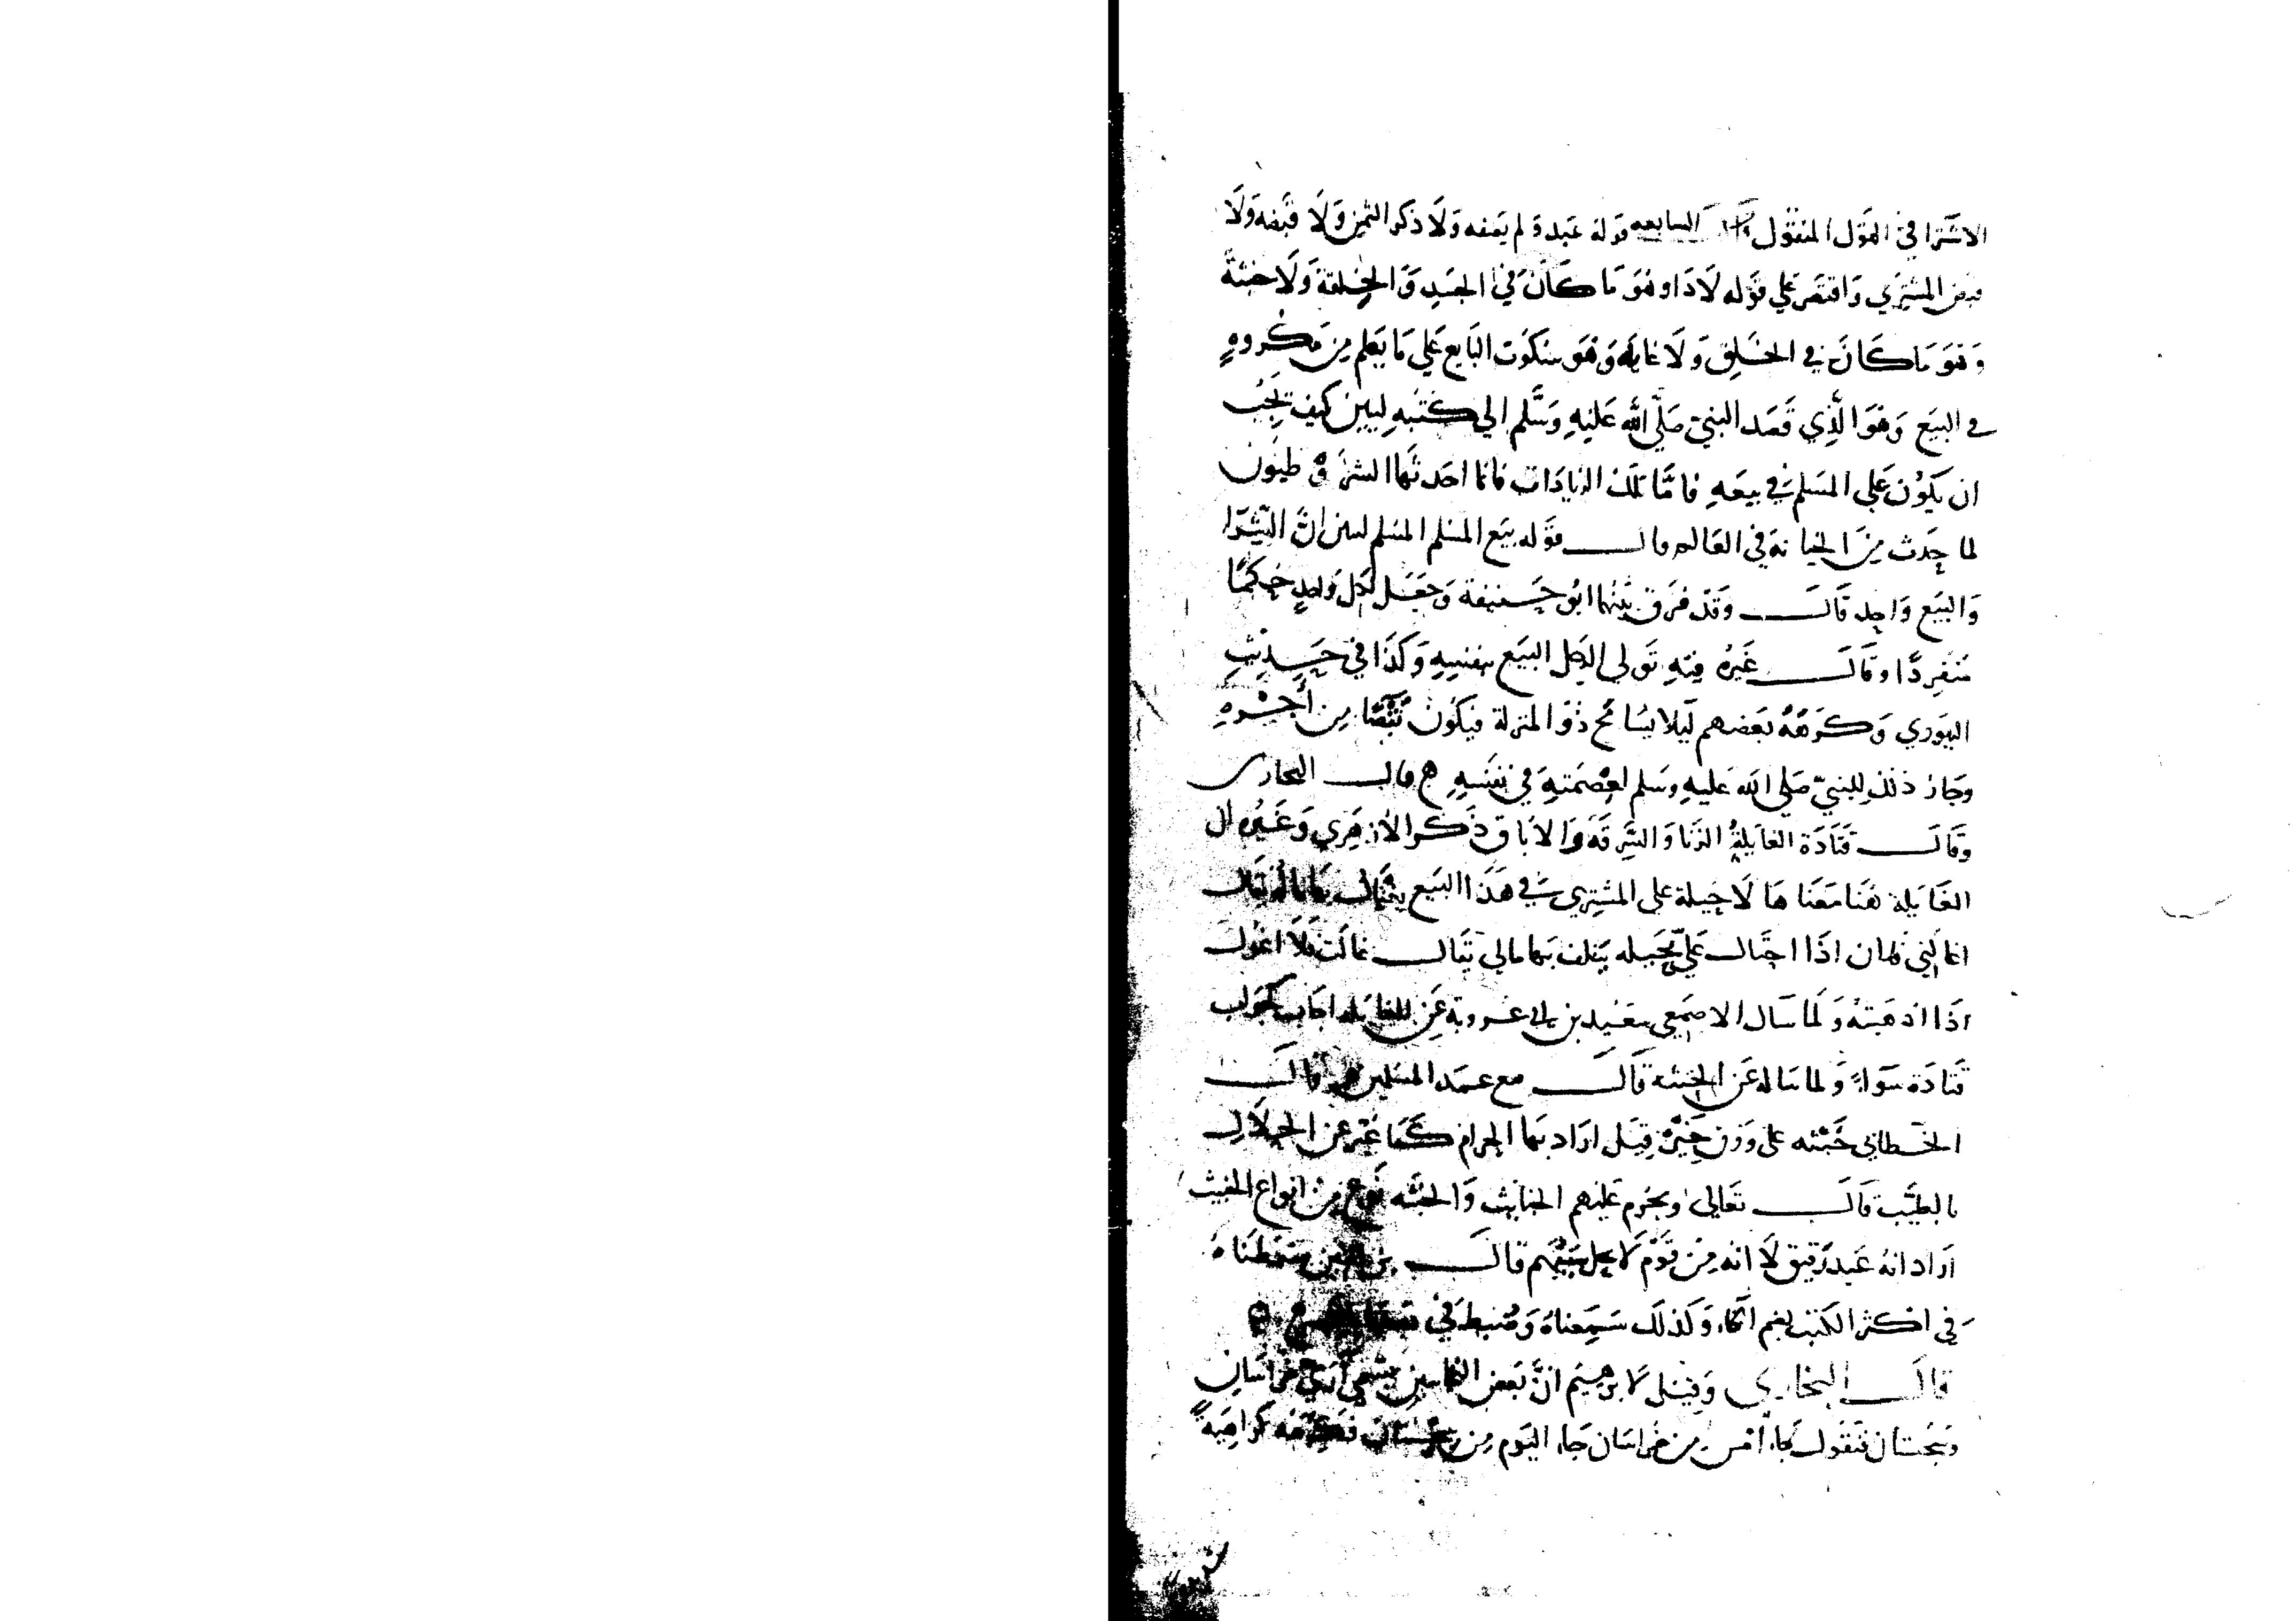 الاشترا في القول المنقول السابعه قوله عبد ولم يصفه ولا ذكر الثمن ولا قبضه ولا
قبض المشتري واقتصر علي قوله لا دا وهو ما كان في الجسد والخلقة ولا خبثة
وهو ما كان في الخلق ولا غايله وهو سكوت البايع علي ما يعلم من مكروه
في البيع وهو الذي قصد النبي صلي الله عليه وسلم الي كتبه ليبين كيف يجب
ان يكون علي المسلم في بيعه فاما تلك الزيادات فانما احدثها الشر
لما حدث من الخيانة في العالم قال قوله بيع المسلم المسلم ليبين ان الشرا
والبيع واحد قال وقد فرق بينهما ابو حنيفة وجعل لكل واحد حكما
منفردا وقال غيره فيه تولي الرجل البيع بنفسه وكذا في حديث
اليهودي وكرهه بعضهم ليلا يسامح ذو المنزلة فيكون نقصا من أجره
وجاز ذلك للنبي صلي الله عليه وسلم لعصمته في نفسه قال البخاري
وقال قتادة الغايلة الزنا والسرقة والاباق ذكر الازهري وغيره ان
الغايلة هنا معناها لا حيلة علي المشتري في هذا البيع يغتال بها ماله يقال
اغتالني فلان اذا احتال علي بحيله يتلف بها مالي يقال غالت فلانا غول
اذا اذهبته ولما سال الاصمعي سعيد بن ابي عروبة عن الغايله اجاب كجواب
قتادة سواء ولما ساله عن الخبثه قال بيع عهد المسلمين قال
الخطابي خبثه علي وزن خيرة قيل اراد بها الحرام كما عبر عن الحلال
بالطيب قال تعالي ويحرم عليهم الخبايث والخبثه نوع من انواع الخبيث
اراد انه عبد رقيق لا انه من قوم لا يحل سبيهم قال بن التين ضبطناه
في اكثر الكتب بضم الخاء وكذلك سمعناه وضبط في
قال البخاري وقيل لابرهيم ان بعض النخاسين يسمي آري خراسان
وسجستان فيقول جاء امس من خراسان جاء اليوم من سجستان فكرهه كراهية